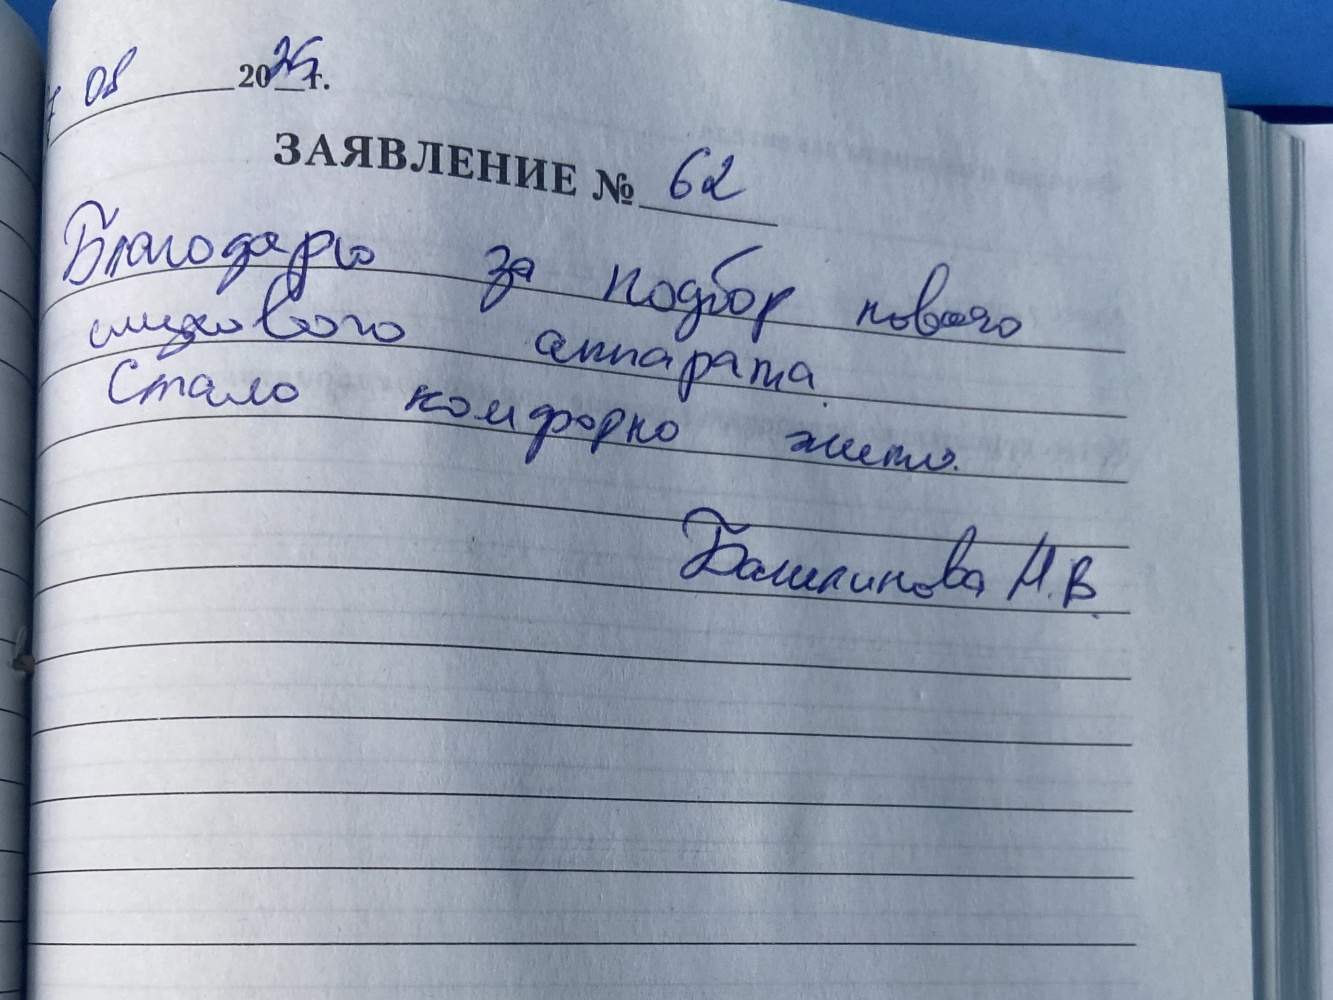 08 2025г.
ЗАЯВЛЕНИЕ № 62
Благодарю за подбор нового
слухового аппарата.
Стало комфорно жить.
Башкинова Н.В.